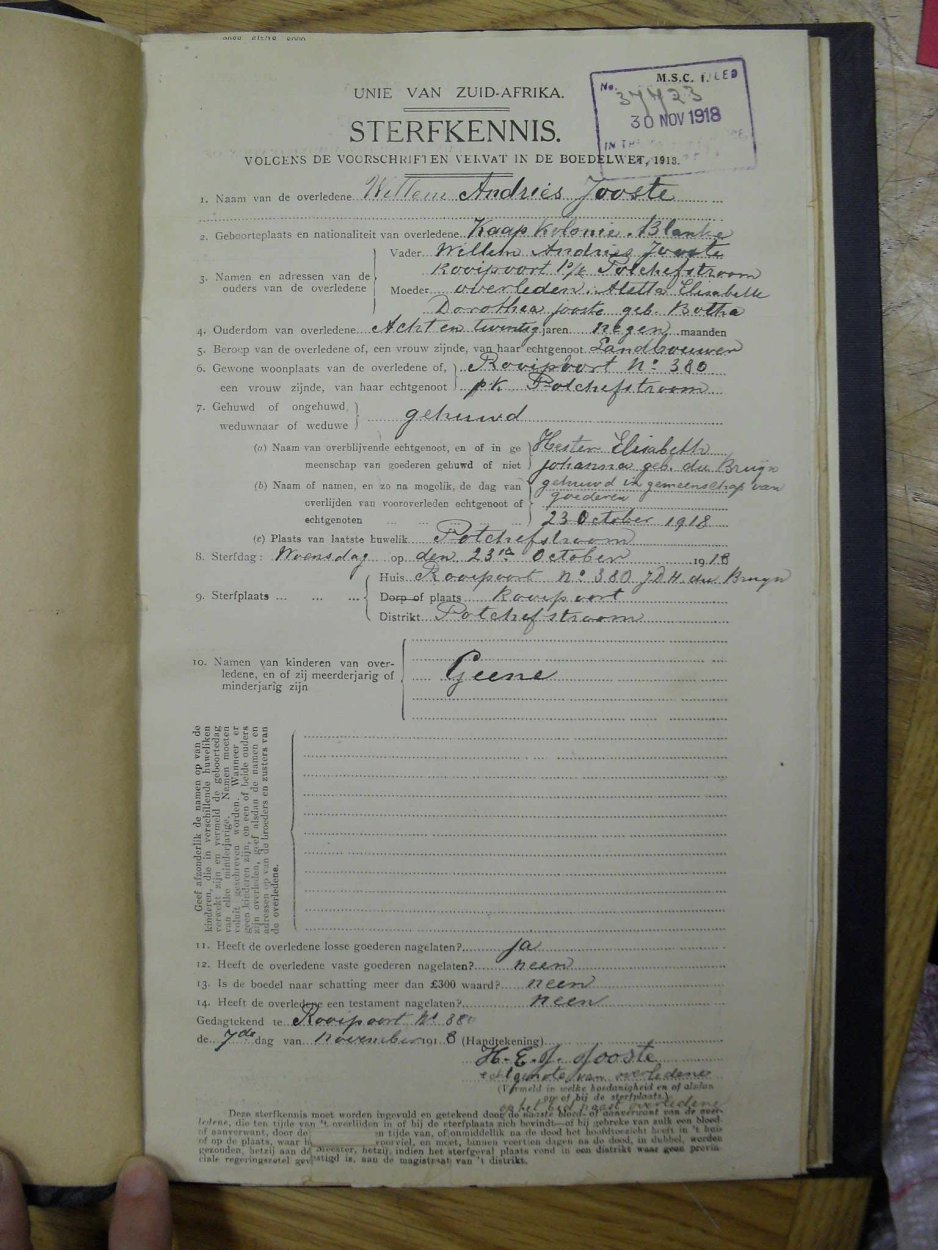 M.S.C. 1.
FILED
No. 37723
30 NOV 1918
IN THE
UNIE VAN ZUID-AFRIKA.
STERFKENNIS.
VOLGENS DE VOORSCHRIFTEN VERVAT IN DE BOEDELWET, 1913.
1. Naam van de overledene Willem Andries Jooste
2. Geboorteplaats en nationaliteit van overledene Kaap Kolonie. Blanke
3. Namen en adressen van de ouders van de overledene
Vader Willem Andries Jooste
Rooipoort P/k Potchefstroom
Moeder overleden. Aletta Elisabella
Dorothea jooste geb. Botha
4. Ouderdom van overledene Acht en twintig jaren negen maanden
5. Beroep van de overledene of, een vrouw zijnde, van haar echtgenoot Landbouwer
6. Gewone woonplaats van de overledene of, Rooipoort No. 380
een vrouw zijnde, van haar echtgenoot pk Potchefstroom
7. Gehuwd of ongehuwd, weduwnaar of weduwe gehuwd
(a) Naam van overblijvende echtgenoot, en of in ge Hester Elisabeth
meenschap van goederen gehuwd of niet johanna geb. du Bruyn
(b) Naam of namen, en zo na mogelik, de dag van gehuwd in gemeenschap van
goederen
overlijden van vooroverleden echtgenoot of
echtgenoten ... ... ... ... 23 October 1918
(c) Plaats van laatste huwelik Potchefstroom
8. Sterfdag: Woensdag op den 23ste October 1918
9. Sterfplaats ... ... ...
Huis Rooipoort No. 380 J.D.H. du Bruyn
Dorp of plaats Rooipoort
Distrikt Potchefstroom
10. Namen van kinderen van over-
ledene, en of zij meerderjarig of Geene
minderjarig zijn
Geef afzonderlik de namen op van de
kinderen, die in verschillende huweliken
verwekt zijn en vermeld de geboortedag
van elke minderjarige. Namen moeten
voluit geschreven worden. Wanneer er
geen kinderen zijn, en een of beide ouders
zijn overleden, geef alsdan de namen en
adressen op van de broeders en zusters van
de overledene.
11. Heeft de overledene losse goederen nagelaten? ja
12. Heeft de overledene vaste goederen nagelaten? neen
13. Is de boedel naar schatting meer dan £300 waard? neen
14. Heeft de overledene een testament nagelaten? neen
Gedagtekend te Rooipoort No 380
de 7de dag van November 1918 (Handtekening)
H. E. J. Jooste
echtgenote van overledene
(Vermeld in welke hoedanigheid en of alstan
op of bij de sterfplaats.)
overledene
Deze sterfkennis moet worden ingevuld en getekend door de naaste bloed- of aanverwant van de over-
ledene, die ten tijde van 't overlijden in of bij de sterfplaats zich bevindt—of bij gebreke van zulk een bloed-
of aanverwant, door de en tijde van, of onmiddellik na de dood het hoofdtoezicht heeft in 't huis
of op de plaats, waar voorviel, en moet, binnen veertien dagen na de dood, in dubbel, worden
gezonden, hetzij aan de Meester, hetzij, indien het sterfgeval plaats vond in een distrikt waar geen provin-
ciale regeringszetel gevestigd is, aan de magistraat van 't distrikt.